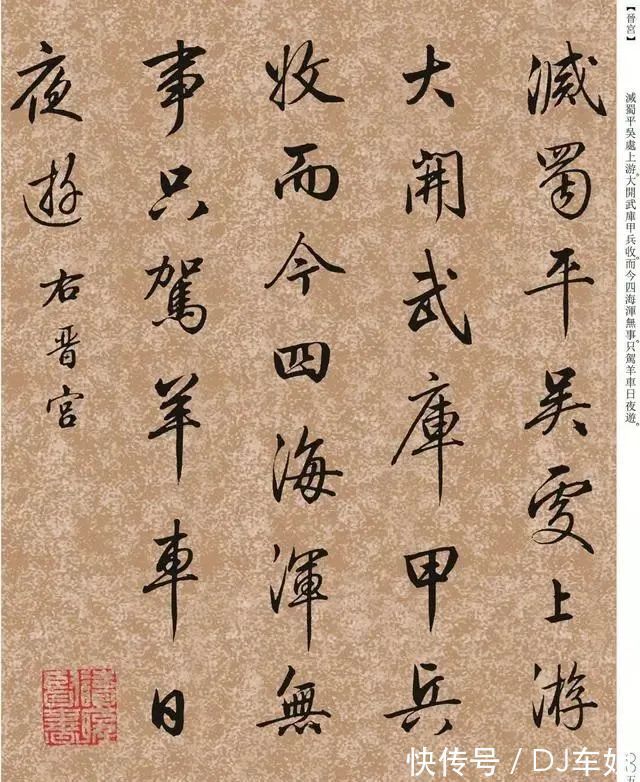 【晉宮】
滅蜀平吳處上游。大開武庫甲兵收。而今四海渾無事。只駕羊車日夜遊。
滅蜀平吴處上游
大開武庫甲兵
收而今四海渾無
事只駕羊車日
夜遊
右晋宫
快传号 / DJ车